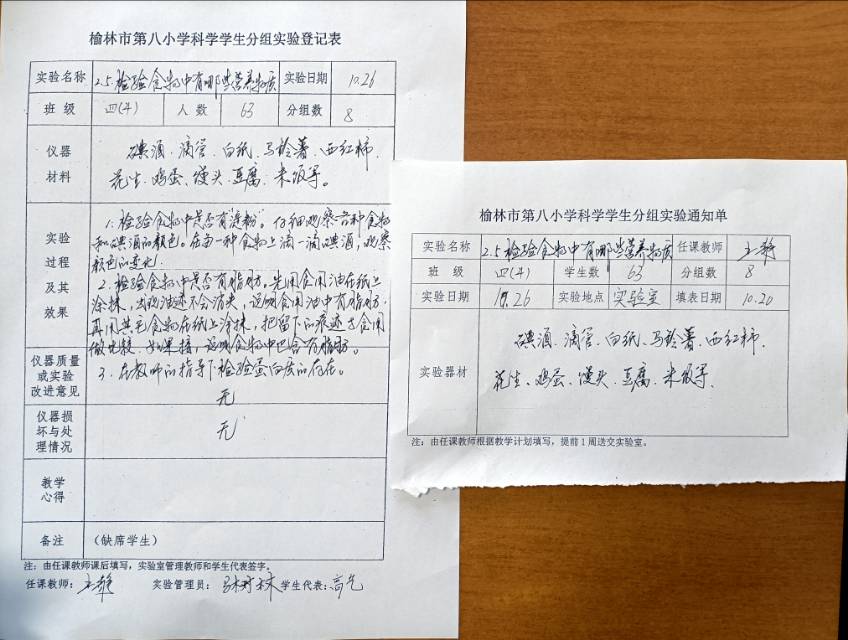 榆林市第八小学科学学生分组实验登记表
实验名称 2.5.检验食物中有哪些营养物质 实验日期 10.26
班级 四(4) 人数 63 分组数 8
仪器材料 碘酒.滴管.白纸.马铃薯.西红柿.
花生.鸡蛋.馒头.豆腐.米饭等.
实验过程及其效果
1.检验食物中是否有"淀粉"。仔细观察各种食物
和碘酒的颜色。在每一种食物上滴一滴碘酒,观察
颜色的变化.
2.检验食物中是否有脂肪.先用食用油在纸上
涂抹,出的油迹不会消失,说明食用油中有脂肪.
再用其它食物在纸上涂抹,把留下的痕迹与食用
做比较.如果接,说明食物中包含有脂肪。
3.在教师的指导下检验蛋白质的存在。
仪器质量或实验改进意见 无
仪器损坏与处理情况 无
教学心得
备注 (缺席学生)
注:由任课教师课后填写,实验室管理教师和学生代表签字。
任课教师: 实验管理员: 学生代表:
榆林市第八小学科学学生分组实验通知单
实验名称 2.5检验食物中有哪些营养物质 任课教师
班级 四(4) 学生数 63 分组数 8
实验日期 10.26 实验地点 实验室 填表日期 10.20
实验器材 碘酒.滴管.白纸.马铃薯.西红柿.
花生、鸡蛋.馒头.豆腐.米饭等.
注:由任课教师根据教学计划填写,提前1周送交实验室。